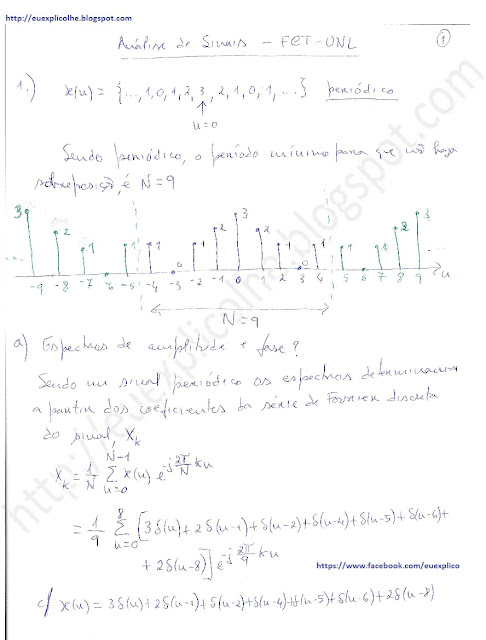 http://euexplicolhe.blogspot.com
Análise de Sinais - FCT-UNL
1
1.) x(n) = {..., 1, 0, 1, 2, 3, 2, 1, 0, 1, ...} periódico
↑
n=0
Sendo periódico, o período mínimo para que não haja
sobreposição, é N=9
3 2 1 1 1 1 2 3 2 1 1 1 1 2 3
0 0
-9 -8 -7 -6 -5 -4 -3 -2 -1 0 1 2 3 4 5 6 7 8 9 n
N=9
a) Espectros de amplitude e fase?
Sendo um sinal periódico os espectros determinam
a partir dos coeficientes da série de Fourier discreta
do sinal, Xk
Xk = 1/N Σ_{n=0}^{N-1} x(n) e^{-j 2π/N kn}
= 1/9 Σ_{n=0}^{8} [3δ(n)+2δ(n-1)+δ(n-2)+δ(n-4)+δ(n-5)+δ(n-6)+
+ 2δ(n-8)] e^{-j 2π/9 kn}
https://www.facebook.com/euexplico
c/ x(n) = 3δ(n)+2δ(n-1)+δ(n-2)+δ(n-4)+δ(n-5)+δ(n-6)+2δ(n-8)
http://euexplicolhe.blogspot.com